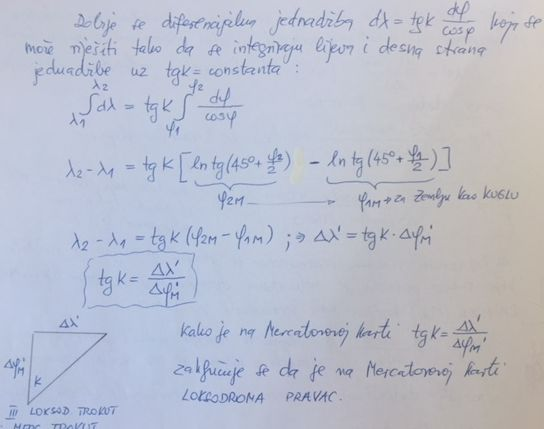 Dobije se diferencijalna jednadžba dλ = tgK dφ/cosφ koja se
može riješiti tako da se integriraju lijeva i desna strana
jednadžbe uz tgK = constanta :
∫λ1^λ2 dλ = tgK ∫φ1^φ2 dφ/cosφ
λ2 - λ1 = tgK [ln tg(45° + φ2/2) - ln tg(45° + φ1/2)]
φ2M → φ1M → za Zemlju kao KUGLU
λ2 - λ1 = tgK (φ2M - φ1M) ; ⇒ Δλ' = tgK · ΔφM'
tgK = Δλ'/ΔφM'
Δλ'
ΔφM'
K
III LOKSOD. TROKUT
MERC. TROKUT
Kako je na Mercatorovoj karti tgK = Δλ'/ΔφM'
zaključuje se da je na Mercatorovoj karti
LOKSODROMA PRAVAC.